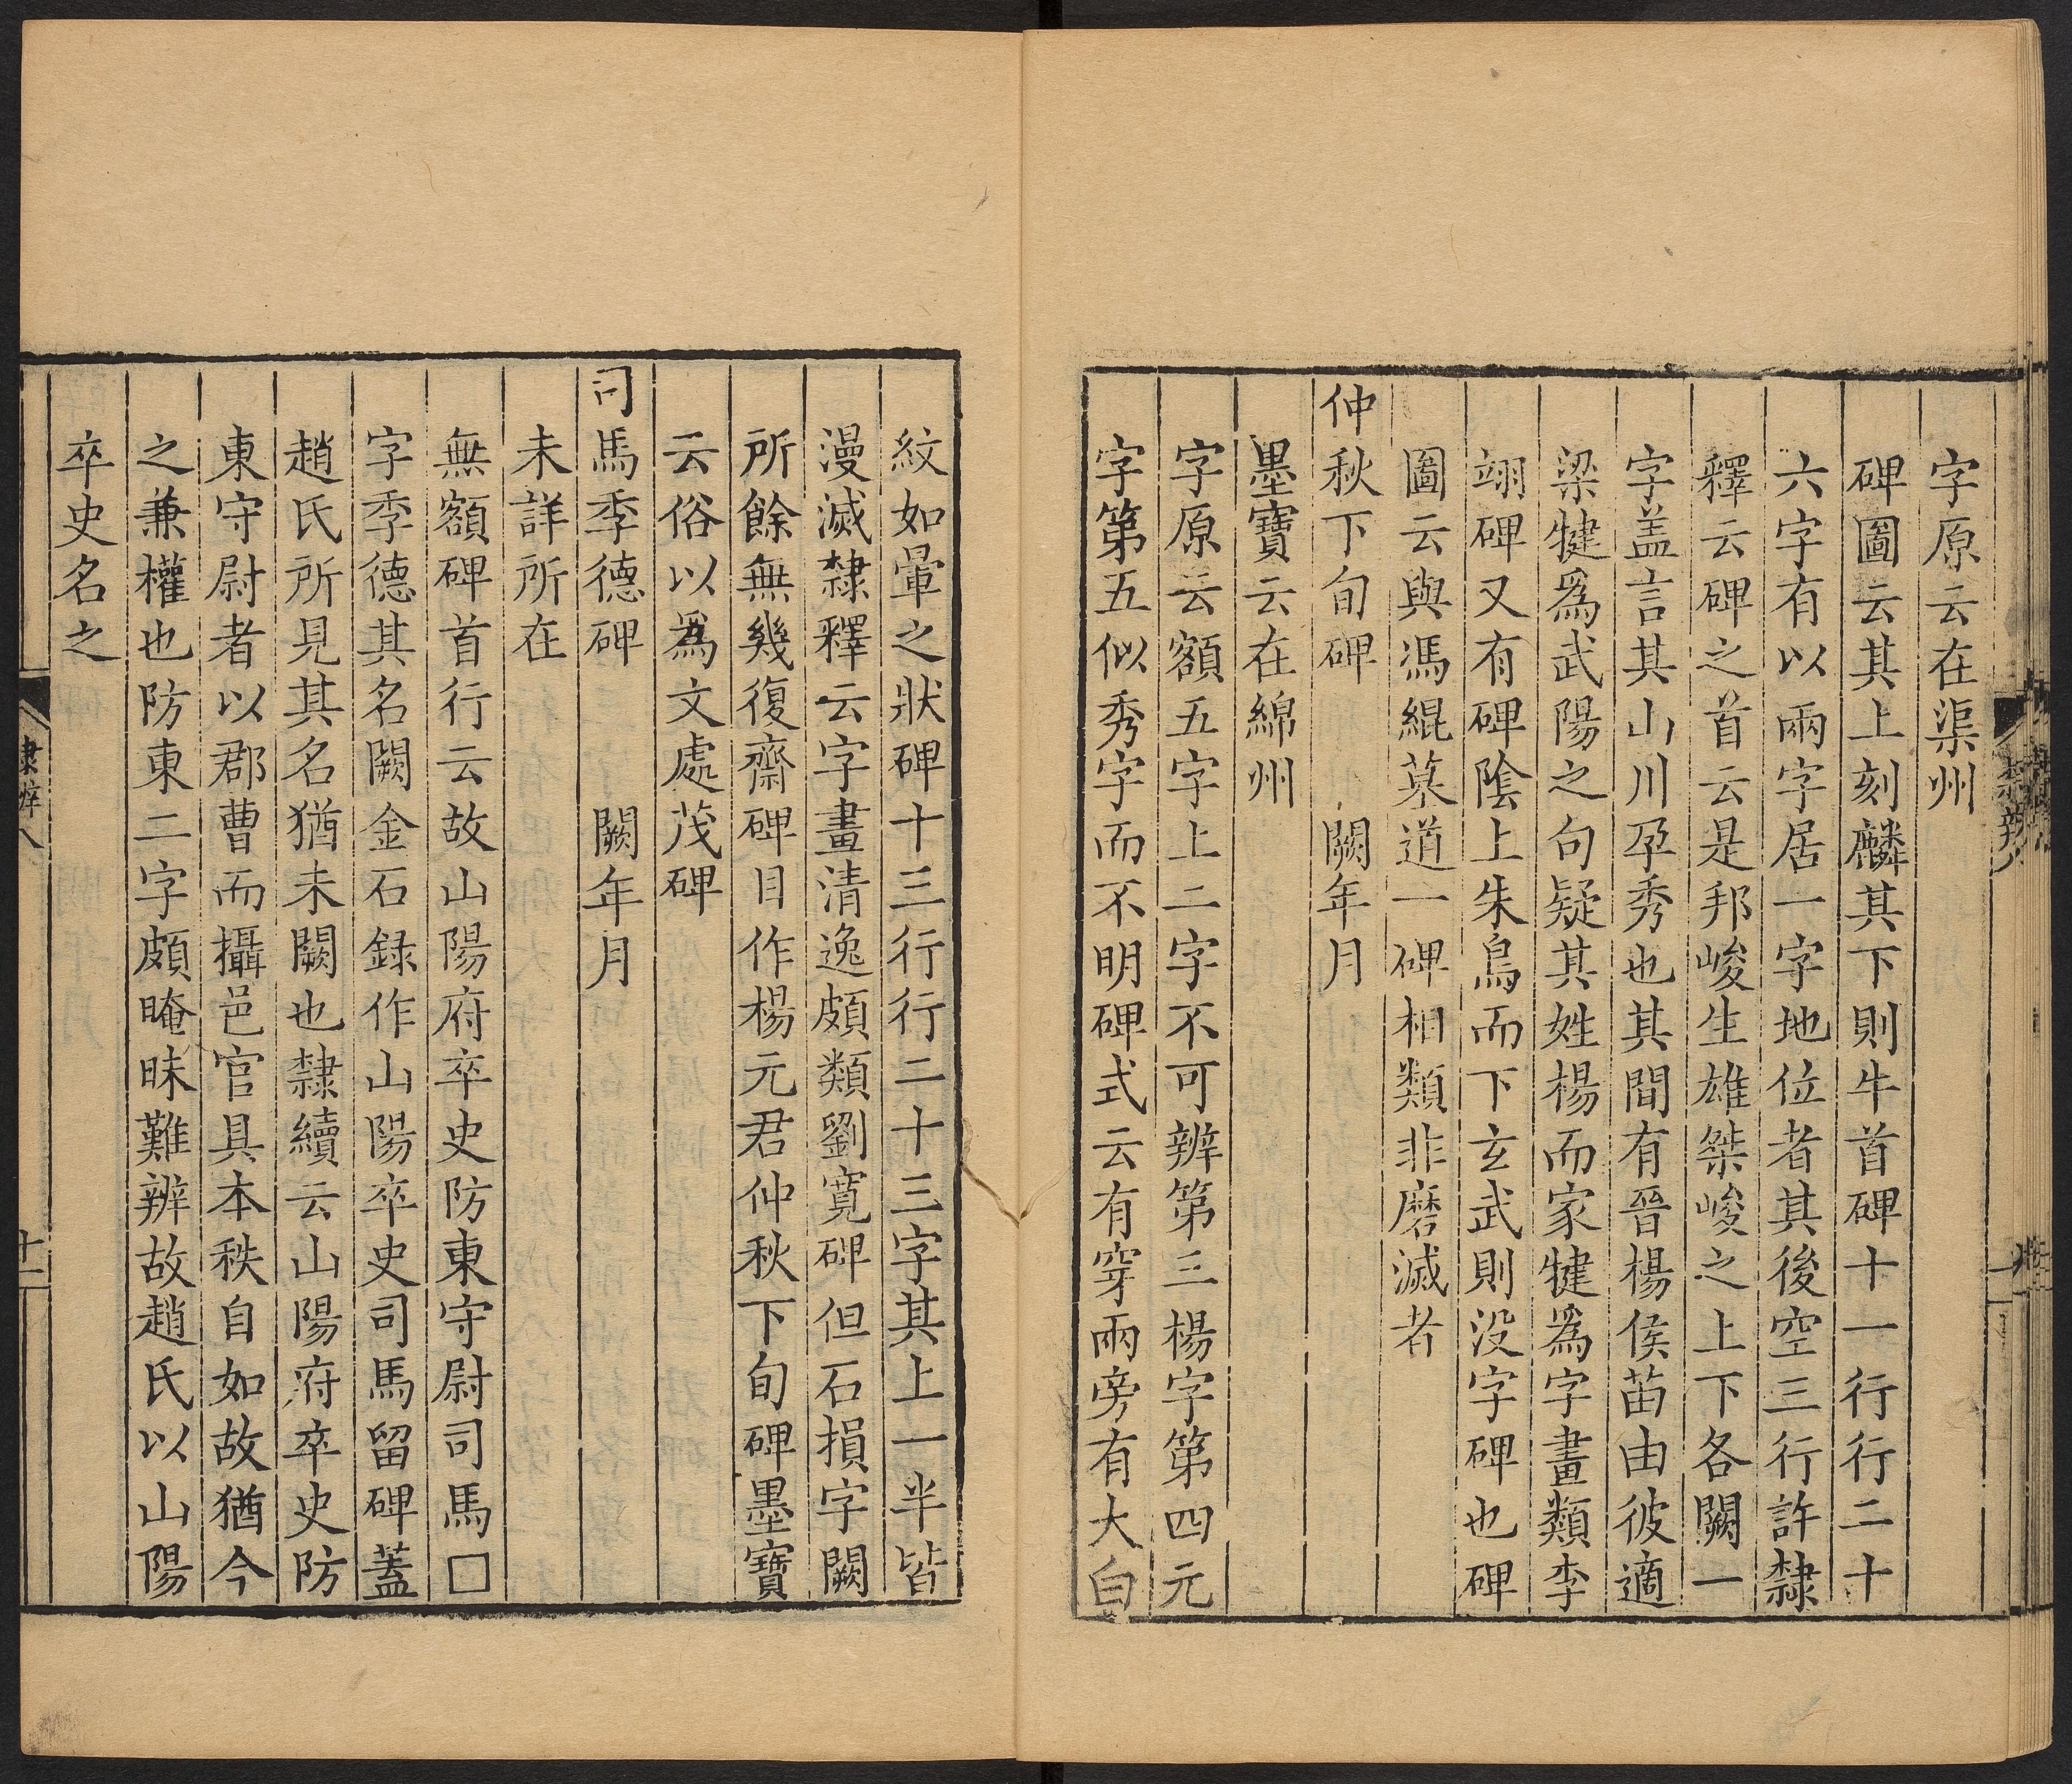 字原云在渠州
碑圖云其上刻麟其下則牛首碑十一行行二十
六字有以兩字居一字地位者其後空三行許隸
釋云碑之首云是邦峻生雄桀峻之上下各闕一
字盖言其山川孕秀也其間有晉楊侯苗由彼適
梁犍爲武陽之句疑其姓楊而家犍爲字畫類李
翊碑又有碑陰上朱鳥而下玄武則没字碑也碑
圖云與馮緄墓道一碑相類非磨滅者
仲秋下旬碑 闕年月
墨寶云在綿州
字原云額五字上二字不可辨第三楊字第四元
字第五似秀字而不明碑式云有穿兩旁有大白
紋如暈之狀碑十三行行二十三字其上一半皆
漫滅隸釋云字畫清逸頗類劉寬碑但石損字闕
所餘無幾復齋碑目作楊元君仲秋下旬碑墨寶
云俗以爲文處茂碑
司馬季德碑 闕年月
未詳所在
無額碑首行云故山陽府卒史防東守尉司馬□
字季德其名闕金石録作山陽卒史司馬留碑蓋
趙氏所見其名猶未闕也隸續云山陽府卒史防
東守尉者以郡曹而攝邑官具本秩自如故猶今
之兼權也防東二字頗晻昧難辨故趙氏以山陽
卒史名之
隸辨八
十一